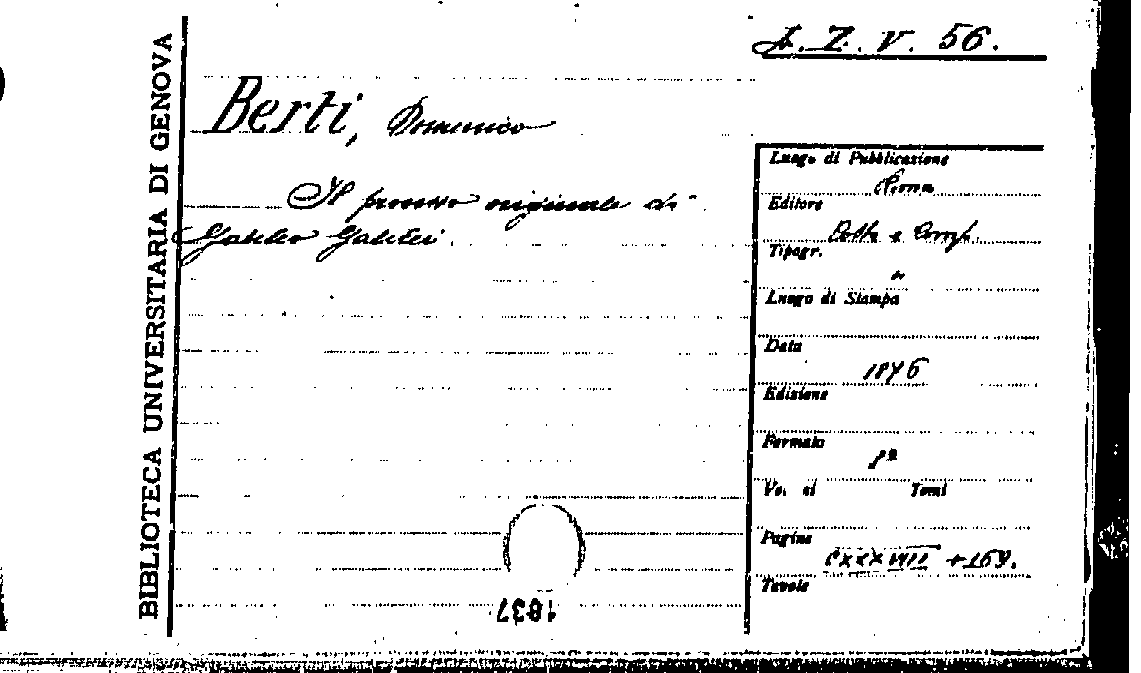 BIBLIOTECA UNIVERSITARIA DI GENOVA
Z. V. 56.
Berti, Domenico
Il processo originale di
Galileo Galilei.
Luogo di Pubblicazione
Roma
Editore
Cotta e Comp.
Tipogr.
Luogo di Stampa
Data
1876
Edizione
Formato
8º
Tomi
Pagine
CXXXVIII +169.
Tavole
1837